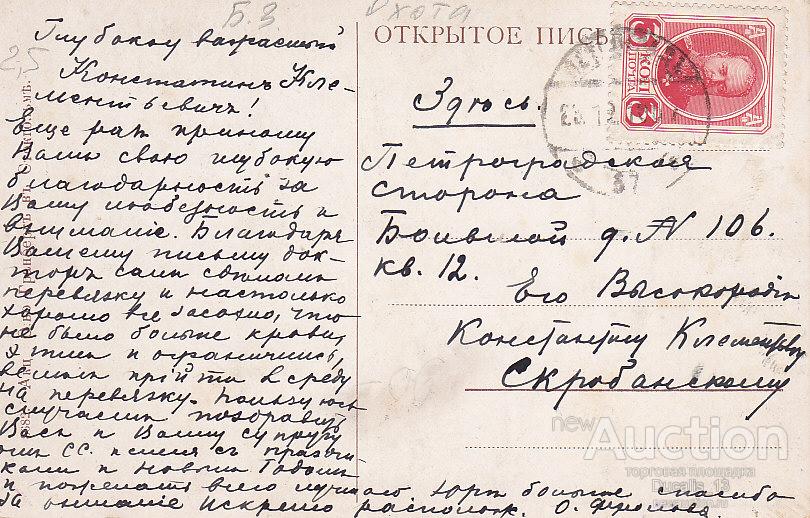 Б. З
Охота
2,5
Глубоко
Константинъ Кле-
ментьевичъ!
Еще разъ приношу
Вамъ свою глубокую
благодарность за
Вашу любезность и
вниманіе. Благодаря
Вашему письму док-
торъ самъ сдѣлалъ
перевязку и настолько
хорошо все что
не было больше крови,
этимъ и ограничились,
прійти въ среду
на перевязку. Пользуюсь
случаемъ поздравить
Васъ и Вашу супругу
съ праздни-
ками и Новымъ Годомъ
и пожелать всего
За вниманіе искренно располож. О.
большое спасибо
ОТКРЫТОЕ ПИСЬ
3 КОП 3
ПОЧТА
37
Здѣсь.
Петроградская
сторона
д. № 106.
кв. 12.
Его Высокородію
Константину
Скробанскому
new
Auction
торговая площадка
Ducalis_13